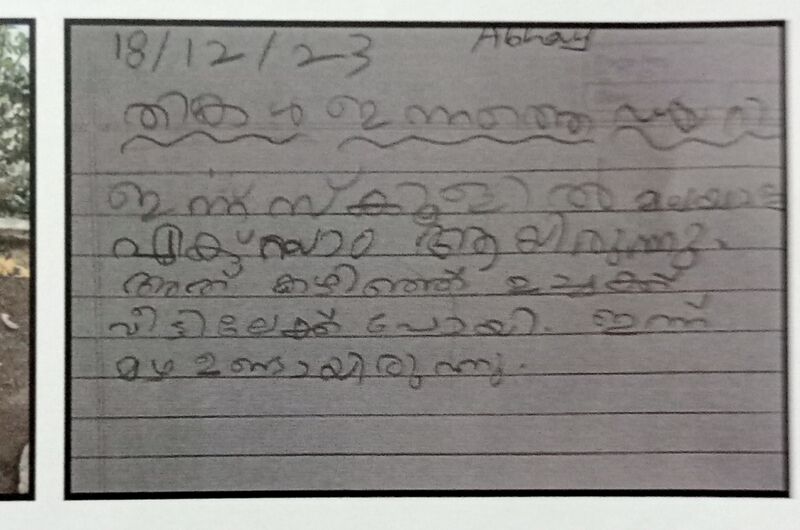 18/12/23 Abhay
തികൾ ഇന്നത്തെ
ഇന്ന് സ്കൂളിൽ
ആയിരുന്നു.
അത് കഴിഞ്ഞ് ഉച്ചക്ക്
വീട്ടിലേക്ക് പോയി. ഇന്ന്
മഴ ഉണ്ടായിരുന്നു.